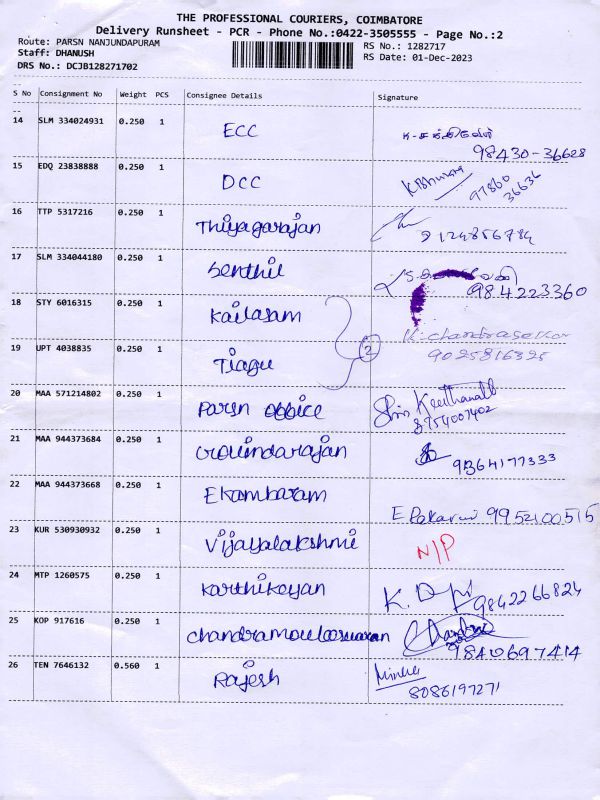 THE PROFESSIONAL COURIERS, COIMBATORE
Delivery Runsheet - PCR - Phone No.:0422-3505555 - Page No.:2
Route: PARSN NANJUNDAPURAM
RS No.: 1282717
Staff: DHANUSH
RS Date: 01-Dec-2023
DRS No.: DCJB128271702
S No Consignment No Weight PCS Consignee Details Signature
14 SLM 334024931 0.250 1 ECC
98430-36628
15 EDQ 23838888 0.250 1 DCC 97860
36636
16 TTP 5317216 0.250 1 Thiyagarajan 9124856784
17 SLM 334044180 0.250 1 Senthil
984223360
18 STY 6016315 0.250 1 Kailasam
K. Chandrasekar
19 UPT 4038835 0.250 1 Tiagu 2 9025816325
20 MAA 571214802 0.250 1 Parsn Office 8754007402
21 MAA 944373684 0.250 1 Govindarajan 9364177333
22 MAA 944373668 0.250 1 Ekambaram
9952100515
23 KUR 530930932 0.250 1 Vijayalakshmi N/P
24 MTP 1260575 0.250 1 Karthikeyan 9842266824
25 KOP 917616 0.250 1 Chandramouleeswaran
9840697414
26 TEN 7646132 0.560 1 Rajesh
8086197271